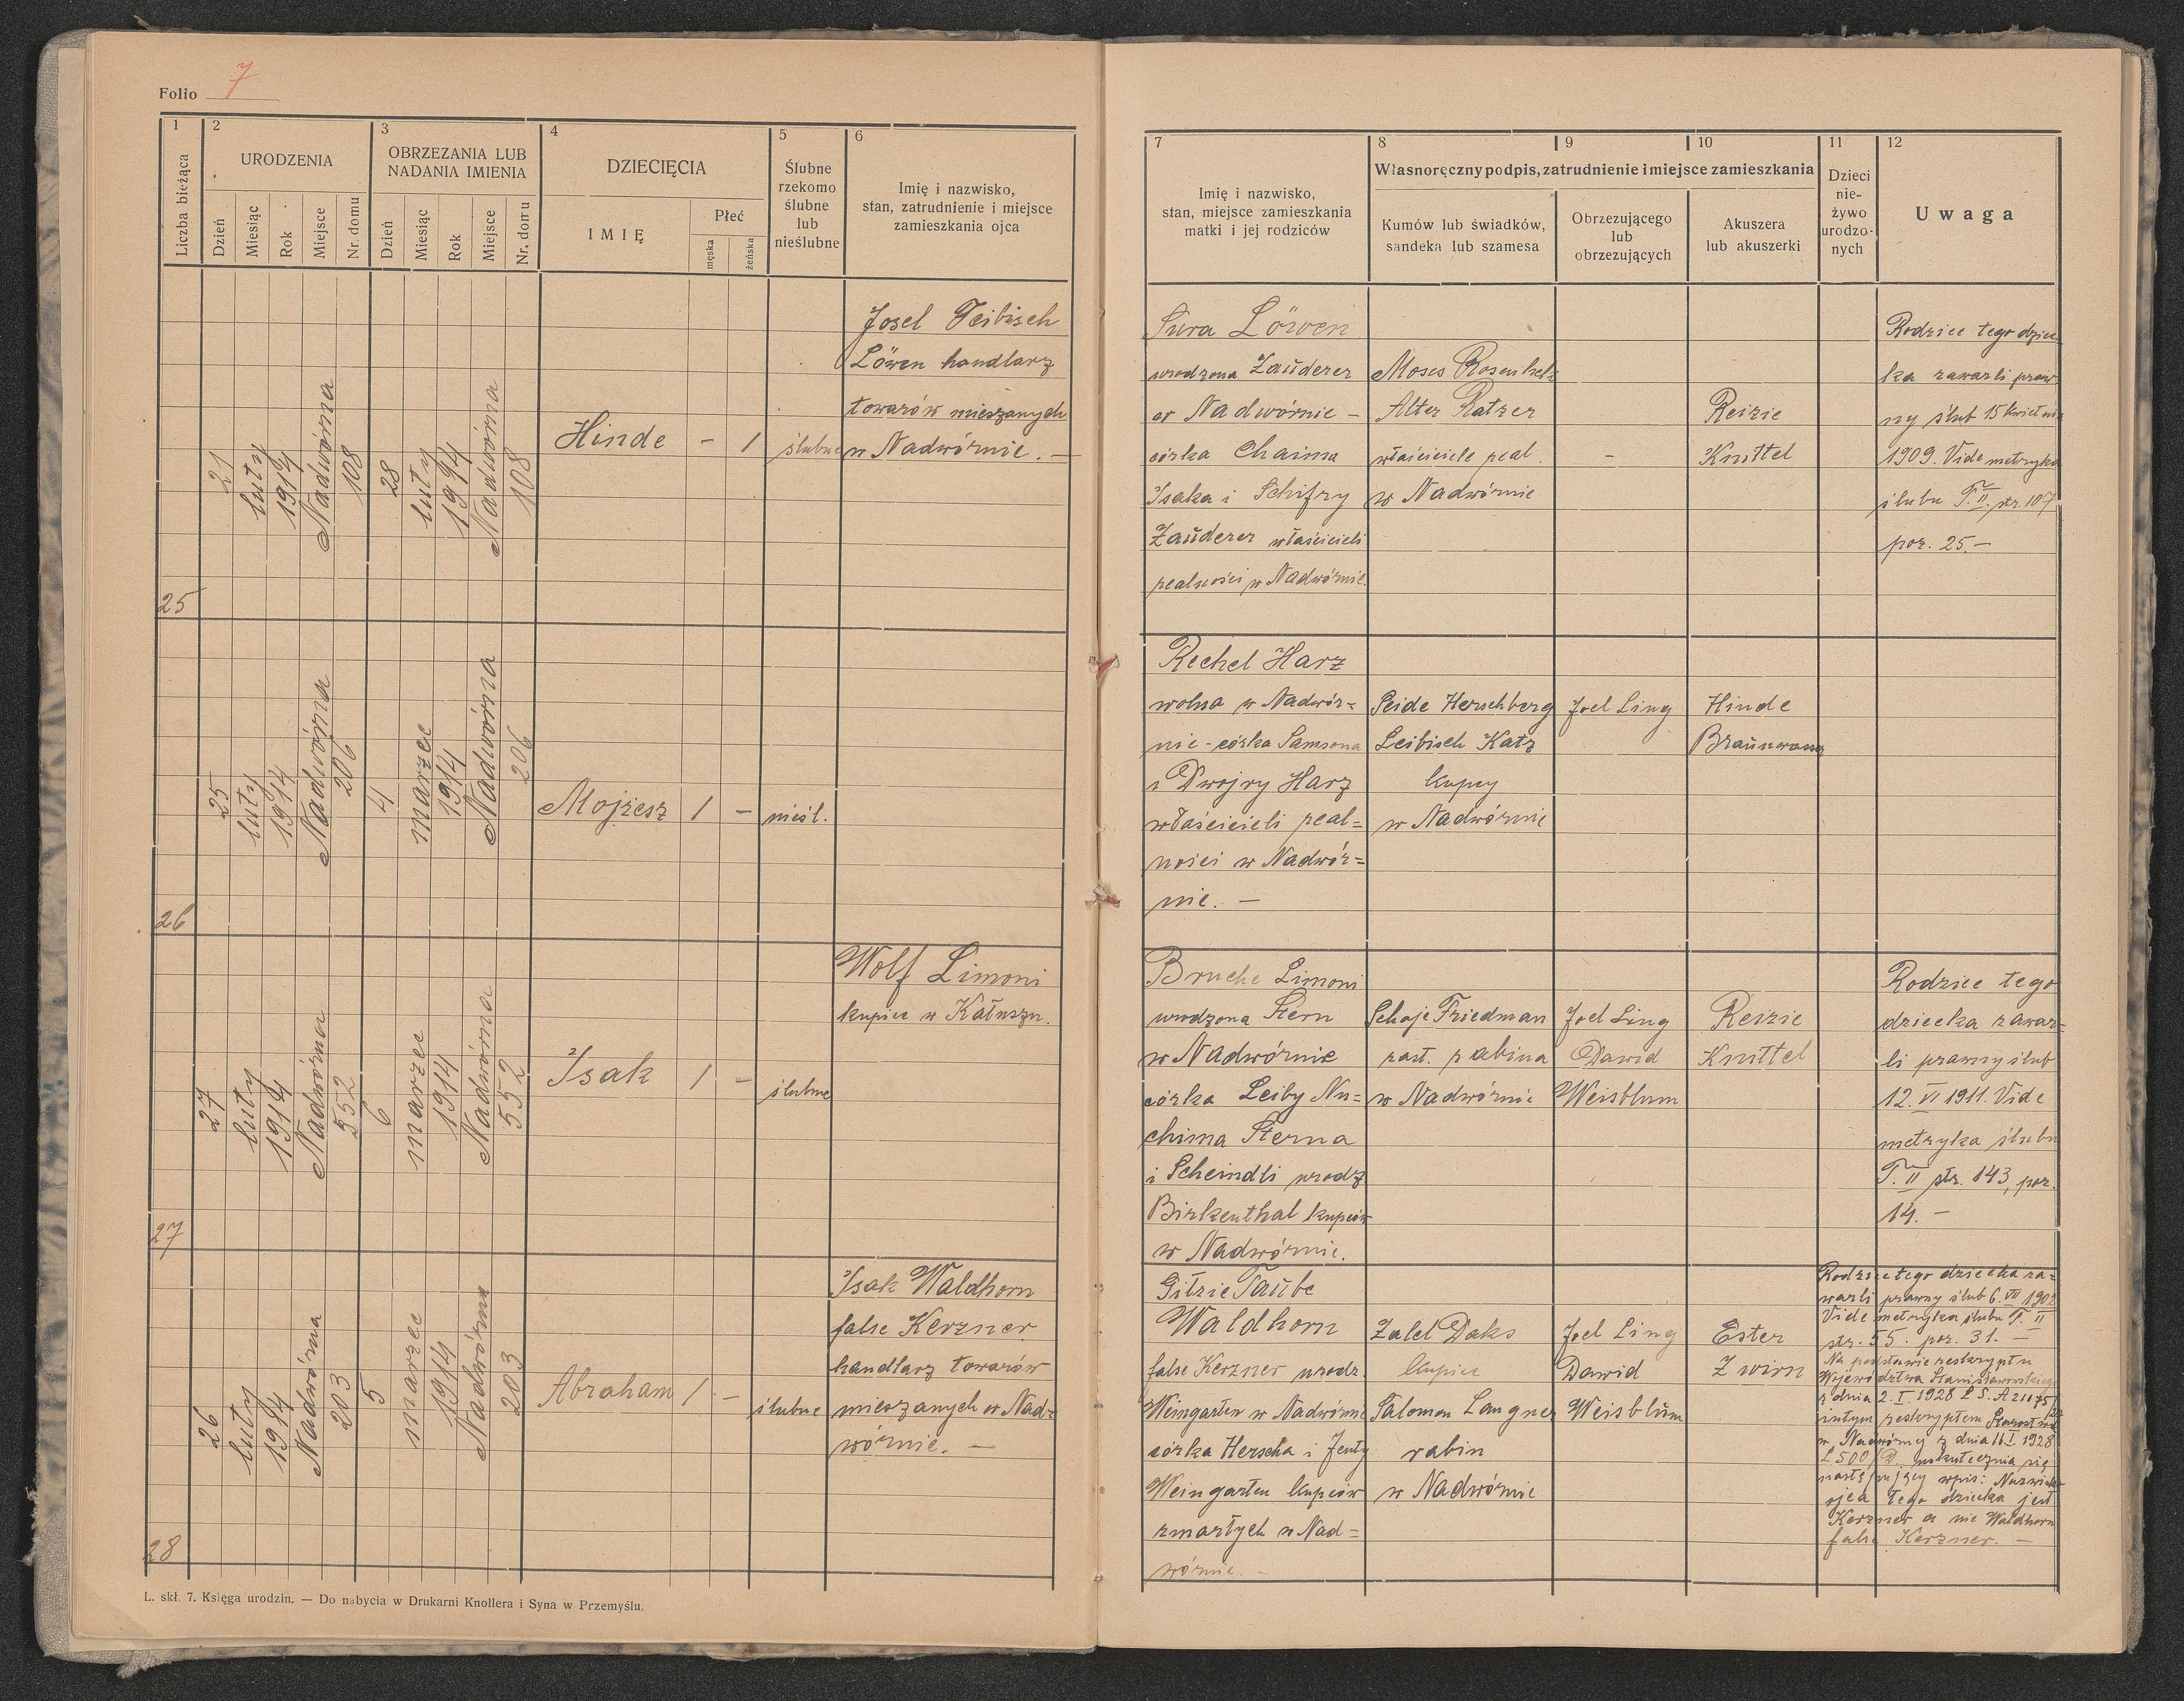 Folio 7
1
2
3
4
5
6
Liczba bieżąca
URODZENIA
OBRZEZANIA LUB
NADANIA IMIENIA
DZIECIĘCIA
Ślubne
rzekomo
ślubne
lub
nieślubne
Imię i nazwisko,
stan, zatrudnienie i miejsce
zamieszkania ojca
Dzień
Miesiąc
Rok
Miejsce
Nr. domu
Dzień
Miesiąc
Rok
Miejsce
Nr. domu
IMIĘ
Płeć
męska
żeńska
25
21
luty
1914
Nadwórna
108
28
luty
1914
Nadwórna
108
Hinde
-
1
ślubne
Josel Feibisch
Löwen handlarz
towarów mieszanych
w Nadwórnie. —
26
25
luty
1914
Nadwórna
206
4
marzec
1914
Nadwórna
206
Mojżesz
1
-
nieśl.
27
27
luty
1914
Nadwórna
552
6
marzec
1914
Nadwórna
552
Isak
1
-
ślubne
Wolf Limoni
kupiec w Kałuszu.
28
26
luty
1914
Nadwórna
203
5
marzec
1914
Nadwórna
203
Abraham
1
-
ślubne
Isak Waldhorn
false Kerzner
handlarz towarów
mieszanych w Nad-
wórnie. —
L. skł. 7. Księga urodzin. — Do nabycia w Drukarni Knollera i Syna w Przemyślu.
7
8
9
10
11
12
Imię i nazwisko,
stan, miejsce zamieszkania
matki i jej rodziców
Własnoręczny podpis, zatrudnienie i miejsce zamieszkania
Kumów lub świadków,
sandeka lub szamesa
Obrzezującego
lub
obrzezujących
Akuszera
lub akuszerki
Dzieci
nie-
żywo
urodzo-
nych
Uwaga
Sura Löwen
urodzona Zauderer
w Nadwórnie -
córka Chaima
Isaka i Schifry
Zauderer właścicieli
realności w Nadwórnie.
Moses
Alter Ratzer
właściciele real.
w Nadwórnie
-
Reizie
Knittel
Rodzice tego dziec
ka zawarli praw-
ny ślub 15 kwietnia
1909. Vide metryka
ślubu T. II. str. 107
poz. 25.—
Rechel Harz
wolna w Nadwór=
nie - córka Samsona
i Dwojry Harz
właścicieli real=
ności w Nadwór=
nie. —
Seide Herschberg
Leibisch Katz
kupcy
w Nadwórnie
Joel Ling
Hinde
Bruche Limoni
urodzona Stern
w Nadwórnie
córka Leiby Nu=
chima Sterna
i Scheindli urodz.
Birkenthal kupców
w Nadwórnie.
Schoje Friedman
zast. rabina
w Nadwórnie
Joel Ling
Dawid
Weisblum
Reizie
Knittel
Rodzice tego
dziecka zawar=
li prawny ślub
12. VI 1911. Vide
metryka ślubu
T. II str. 143, poz.
14. —
Gitzie Taube
Waldhorn
false Kerzner urodz.
Weingarten w Nadwórnie
córka Herscha i Jenty
Weingarten kupców
zmarłych w Nad=
wórnie. —
Zalel Daks
kupiec
Salomon Langner
rabin
w Nadwórnie
Joel Ling
Dawid
Weisblum
Ester
Zwirn
Rodzice tego dziecka za=
warli prawny ślub 6. VII 1902
Vide metryka ślubu T. II
str. 55. poz. 31. —
Na podstawie reskryptu
Województwa Stanisławowskiego
z dnia 2. I. 1928
reskryptem Starostwa
w Nadwórnej z dnia 11 I. 1928
L 500 uskutecznia się
następujący wpis: Nazwisko
ojca tego dziecka jest
Kerzner a nie Waldhorn
false Kerzner. —